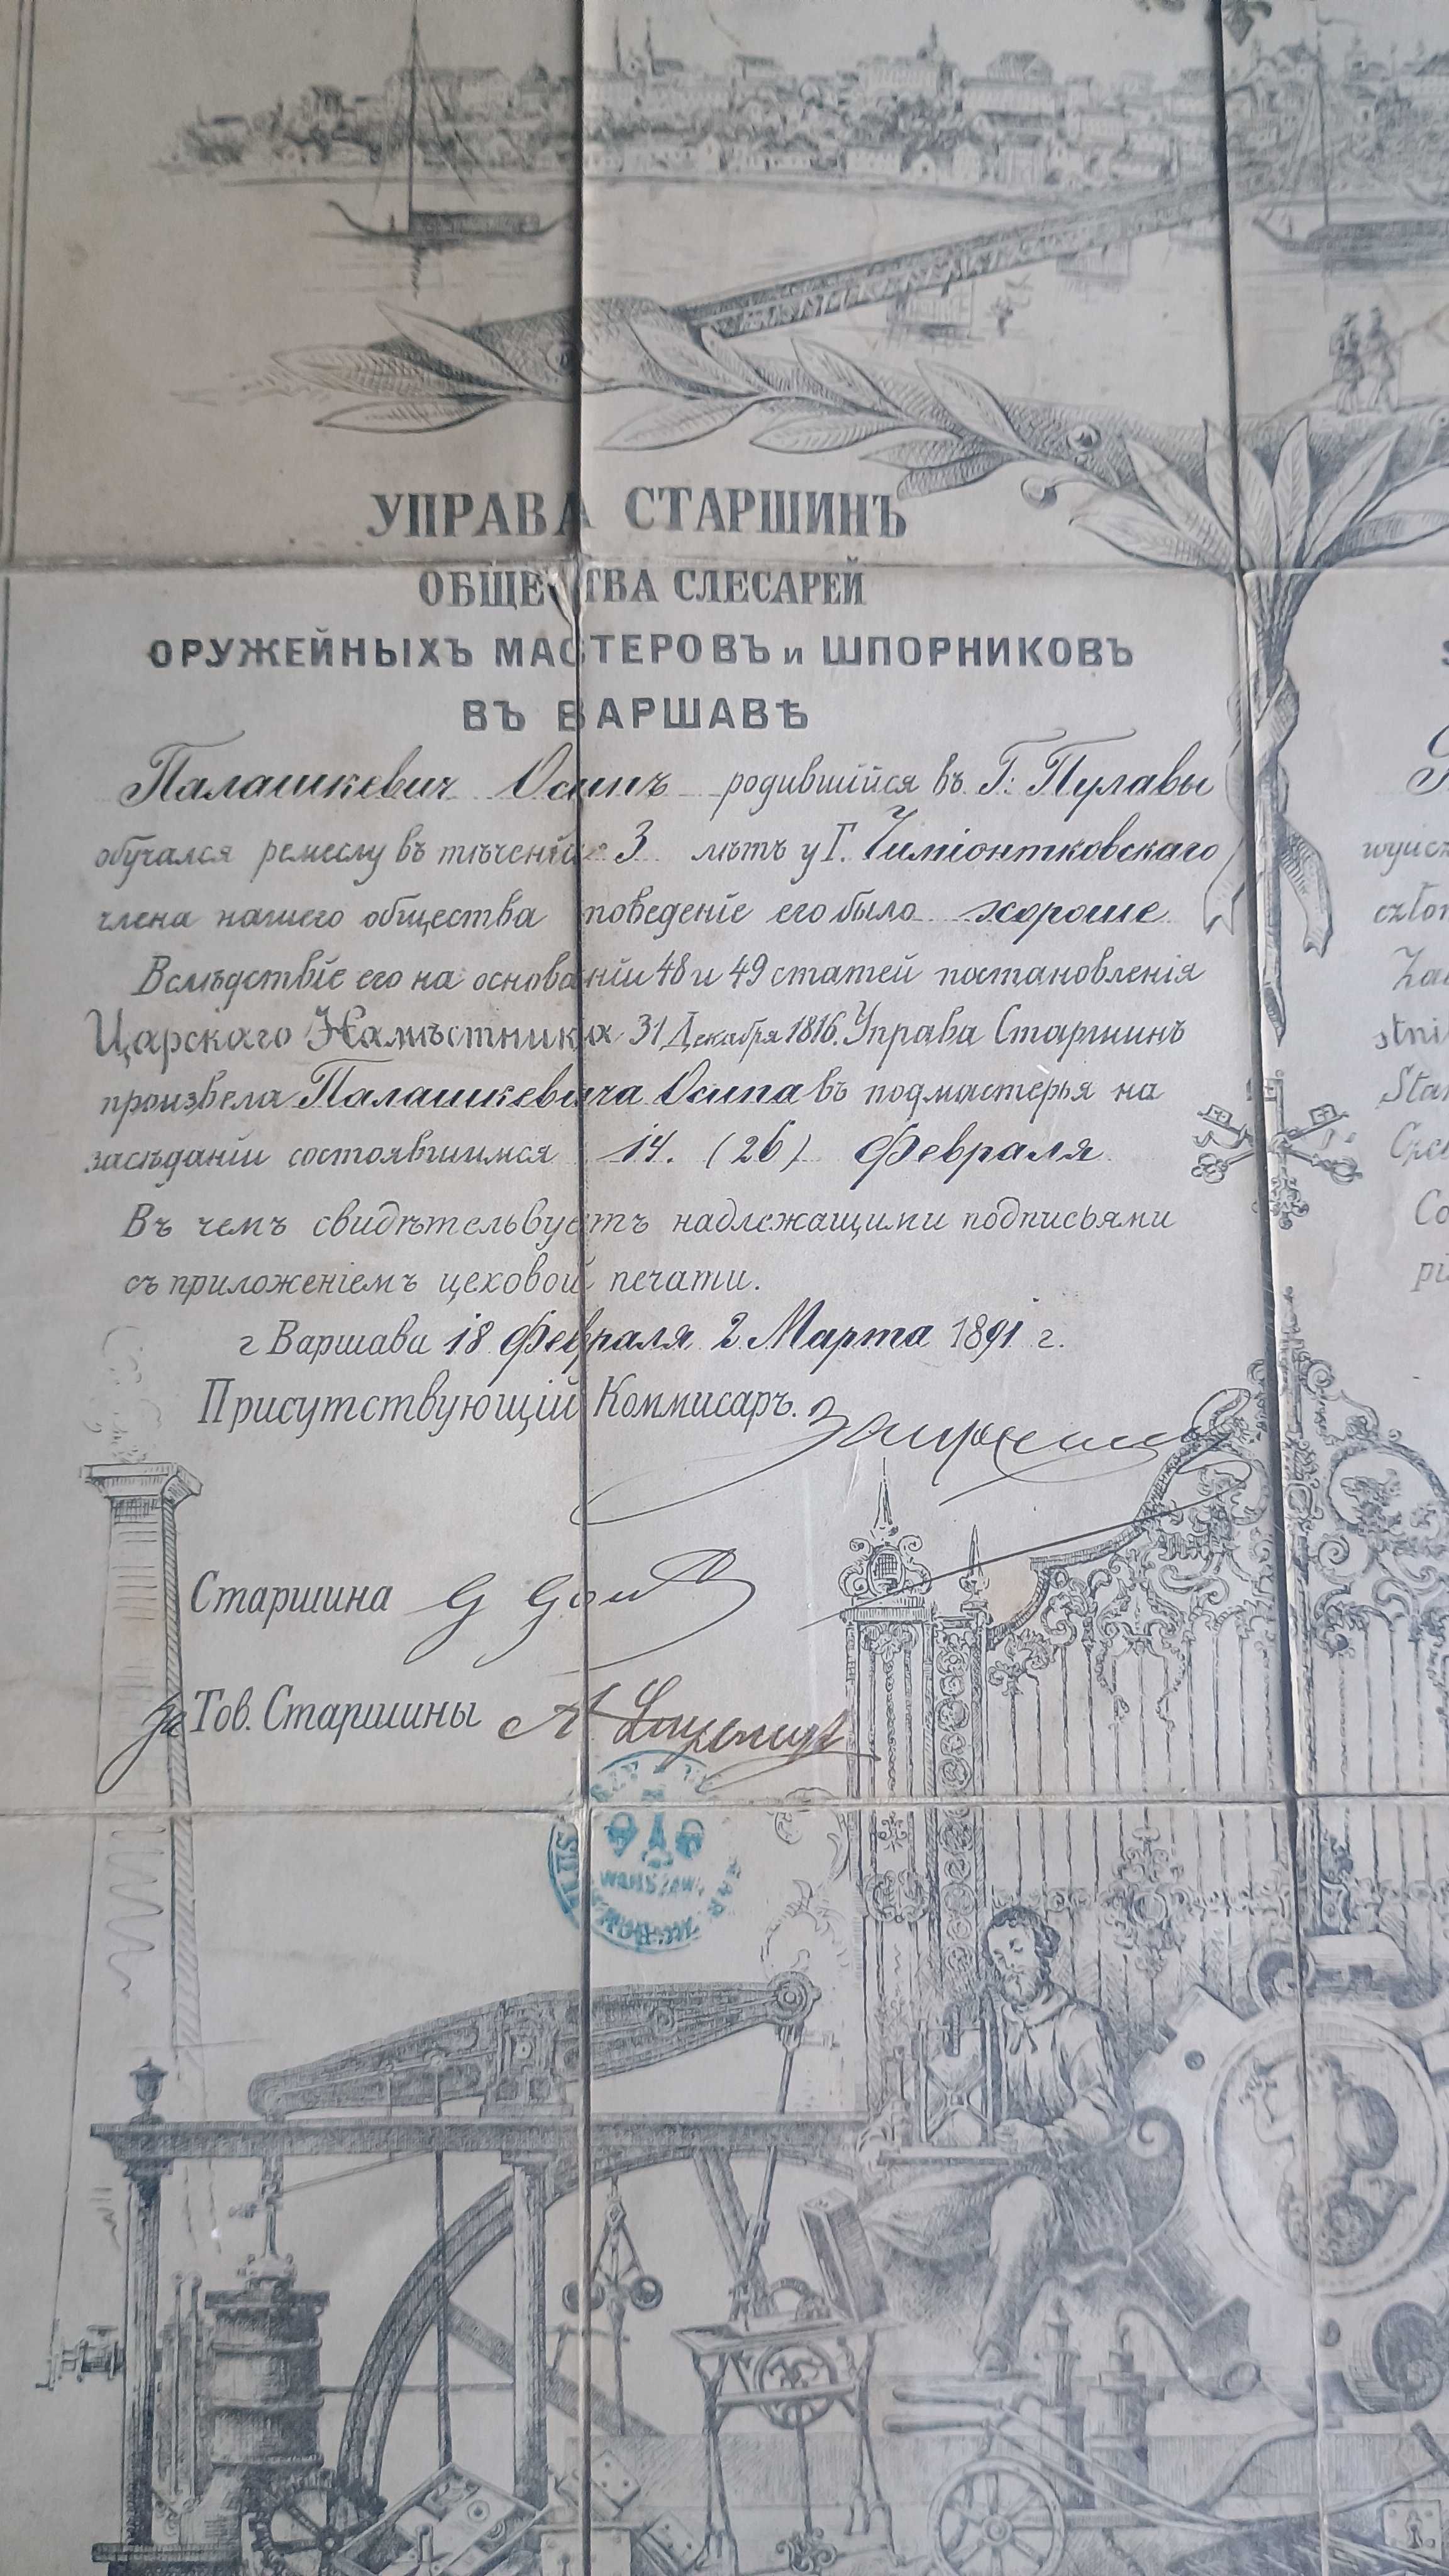 УПРАВА СТАРШИНЪ
ОБЩЕСТВА СЛЕСАРЕЙ
ОРУЖЕЙНЫХЪ МАСТЕРОВЪ и ШПОРНИКОВЪ
ВЪ ВАРШАВѢ
Палашкевич Осипъ родившійся въ Г: Пулавы
обучался ремеслу въ тѣченіи 3 лѣтъ у Г. Чиміонтковскаго
члена нашего общества поведеніе его было хорошие
Вслѣдствіе его на основаніи 48 и 49 статей постановленія
Царскаго Намѣстника 31 Декабря 1816. Управа Старшинъ
произвела Палашкевича Осипа въ подмастерья на
засѣданіи состоявшимся 14. (26) Февраля
Въ чемъ свидѣтельвуетъ надлежащими подписьями
съ приложеніемъ цеховой печати.
г Варшава 18 Февраля 2 Марта 1891 г.
Присутствующій Коммисаръ.
Старшина
за Тов. Старшины А
WARSZAW
wyucz
człon
Za
stni
Star
Co
pi